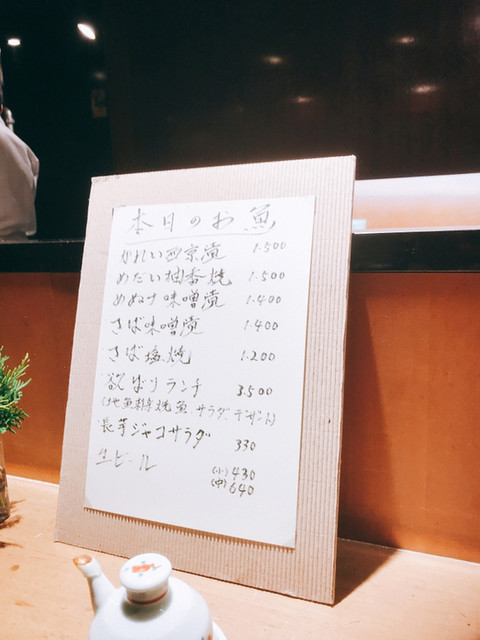 本日のお魚
かれい西京漬 1.500
めだい柚香焼 1.500
めぬけ味噌漬 1.400
さば味噌漬 1.400
さば塩焼 1.200
欲ばりランチ 3.500
(地魚刺身 焼魚 サラダ デザート)
長芋ジャコサラダ 330
生ビール (小) 430
(中) 640